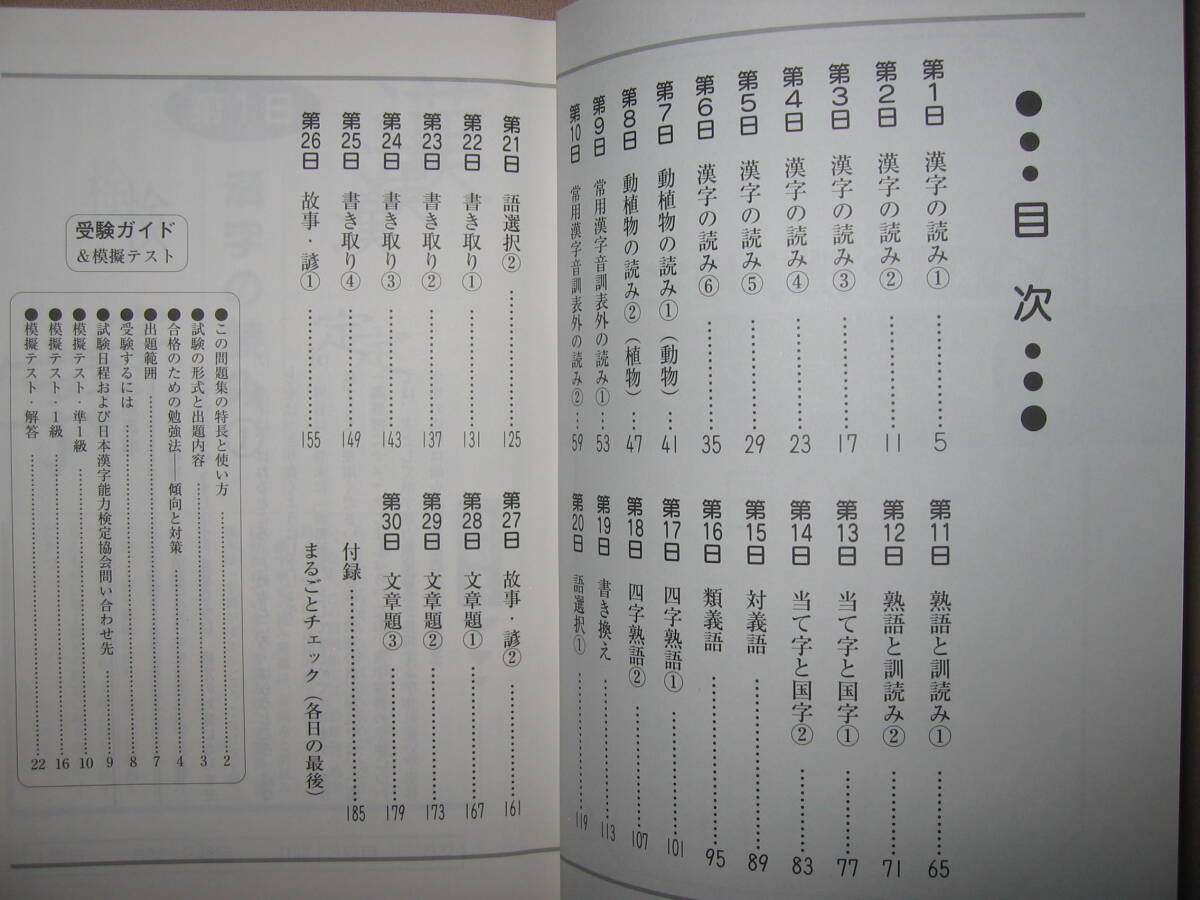 目次
第1日 漢字の読み① 5
第2日 漢字の読み② 11
第3日 漢字の読み③ 17
第4日 漢字の読み④ 23
第5日 漢字の読み⑤ 29
第6日 漢字の読み⑥ 35
第7日 動植物の読み①(動物) 41
第8日 動植物の読み②(植物) 47
第9日 常用漢字音訓表外の読み① 53
第10日 常用漢字音訓表外の読み② 59
第11日 熟語と訓読み① 65
第12日 熟語と訓読み② 71
第13日 当て字と国字① 77
第14日 当て字と国字② 83
第15日 対義語 89
第16日 類義語 95
第17日 四字熟語① 101
第18日 四字熟語② 107
第19日 書き換え 113
第20日 語選択① 119
第21日 語選択② 125
第22日 書き取り① 131
第23日 書き取り② 137
第24日 書き取り③ 143
第25日 書き取り④ 149
第26日 故事・諺① 155
第27日 故事・諺② 161
第28日 文章題① 167
第29日 文章題② 173
第30日 文章題③ 179
付録 185
まるごとチェック(各日の最後)
受験ガイド
&模擬テスト
●この問題集の特長と使い方 2
●試験の形式と出題内容 3
●合格のための勉強法――傾向と対策 4
●出題範囲 7
●受験するには 8
●試験日程および日本漢字能力検定協会問い合わせ先 9
●模擬テスト・準1級 10
●模擬テスト・1級 16
●模擬テスト・解答 22